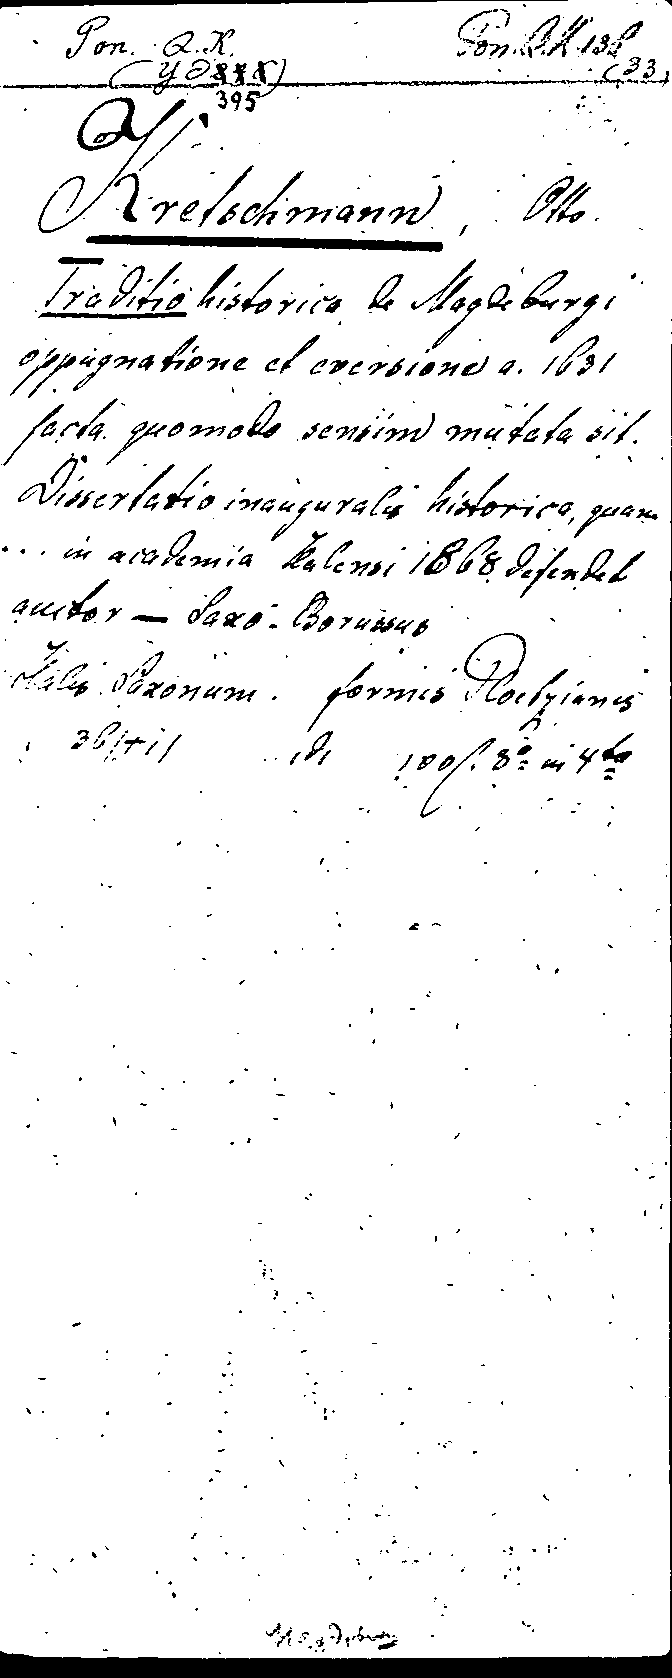 Pon. Q. K. Pon. Q. K. 138
(Yd (33)
395
Kretschmann, Otto.
Traditio historica de Magdeburgi
oppugnatione et eversione a. 1631
facta quomodo sensim mutata sit.
Dissertatio inauguralis historica, quam
... in academia Halensi 1868 defendet
auctor — Saxo-Borussus
Halis Saxonum. formis Ploetzianis
8° in 4to
Magdeburg